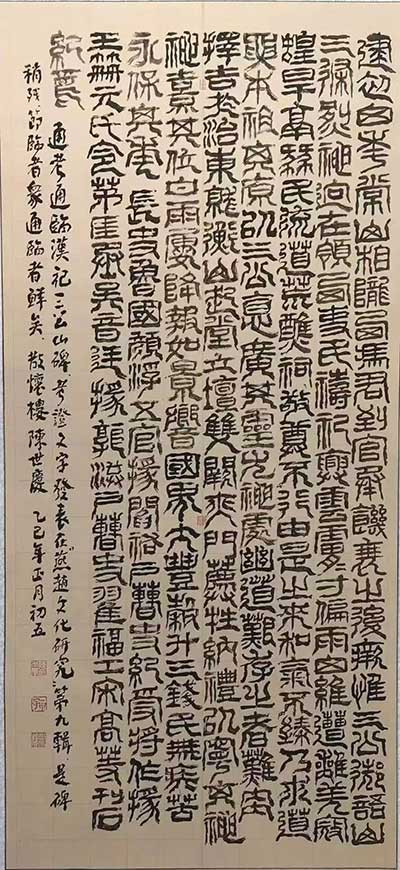 建初四年常山相隴西馮君到官承饑衰之後惟三公御語山
三條別神迥在領西吏民禱祀興雲膚寸偏雨四維遭離羌寇
蝗旱鬲我民流道荒醮祠敬奠不行由是之來和氣不臻乃求道
要本祖其原以三公德廣其靈尤神處幽道艱存之者難卜
擇吉於治東就衡山起堂立壇雙闕夾門薦牲納禮以寧其神
神熹其位甘雨屢降報如景響國界大豐穀斗三錢民無疾苦
永保其年長史魯國顏浮五官掾閻祐戶曹史紀受將作掾
王笧元氏令茅匡丞吳音廷掾郭洪戶曹史翟福工宋高等刊石
紀焉
通考通臨漢祀三公山碑考證文字發表在燕趙文化研究第九輯是碑
稍殘節臨者衆通臨者鮮矣散懷樓陳世慶乙巳年正月初五